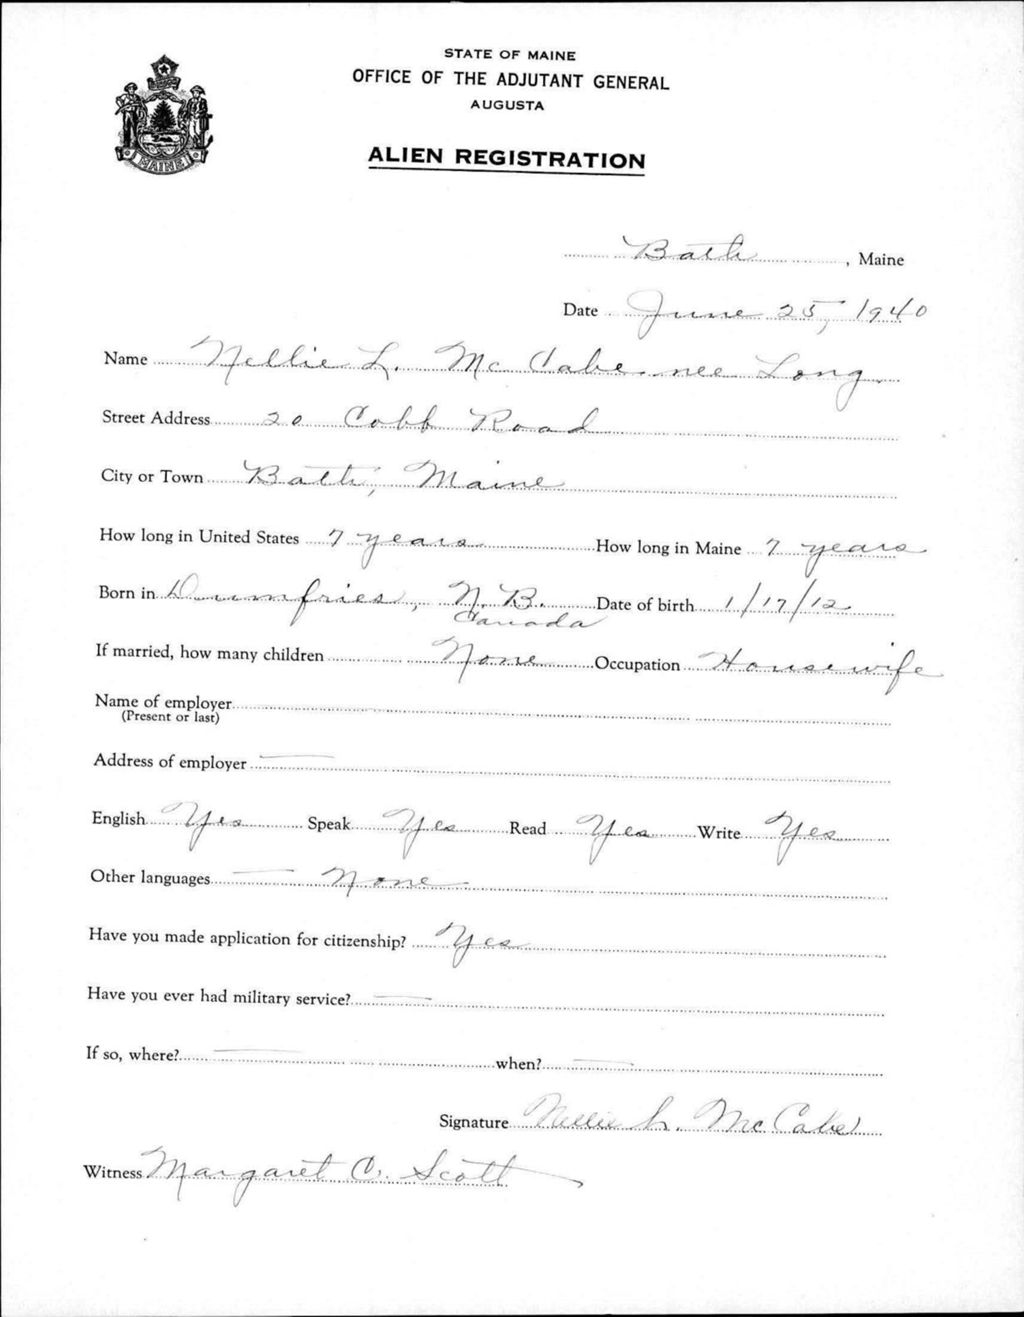 STATE OF MAINE
OFFICE OF THE ADJUTANT GENERAL
AUGUSTA
MAINE
ALIEN REGISTRATION
Bath, Maine
Date June 25, 1940
Name Nellie L. McCabe nee Long
Street Address 20 Cobb Road
City or Town Bath, Maine
How long in United States 7 years How long in Maine 7 years
Born in Dumfries, N.B. Date of birth 1/17/12
Canada
If married, how many children None Occupation Housewife
Name of employer
(Present or last)
Address of employer —
English Yes Speak Yes Read Yes Write Yes
Other languages — None
Have you made application for citizenship? Yes
Have you ever had military service? —
If so, where? — when? —
Signature Nellie L. McCabe
Witness Margaret C. Scott